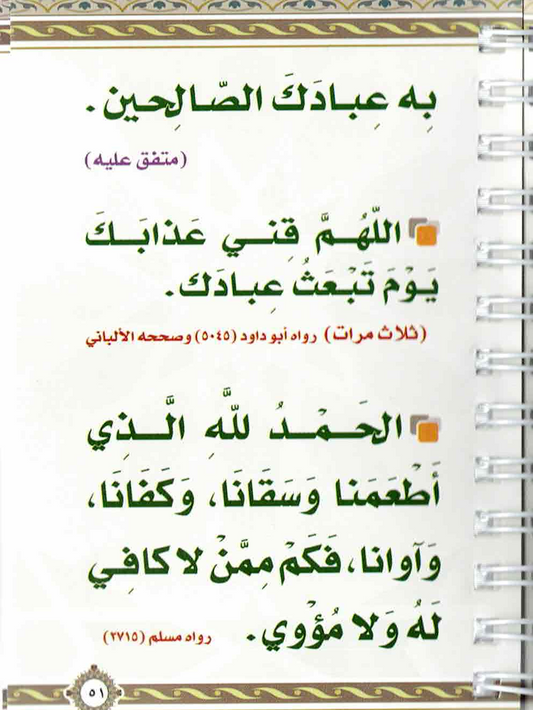 بِه عِبادَكَ الصَّالِحين.
(متفق عليه)
اللَّهُمَّ قِني عَذابَكَ
يَوْمَ تَبْعَثُ عِبادَك.
(ثلاث مرات) رواه أبو داود (٥٠٤٥) وصححه الألباني
الحَمْدُ للَّهِ الَّذِي
أَطْعَمَنا وَسَقَانَا، وَكَفَانَا،
وَآوانا، فَكَمْ مِمَّنْ لا كافِي
لَهُ وَلا مُؤْوي. رواه مسلم (٢٧١٥)
٥١